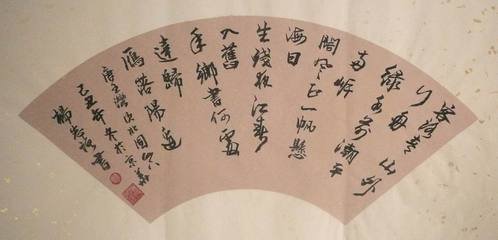 客路青山外
行舟
綠水前潮平
兩岸
闊風正一帆懸
海日
生殘夜江春
入舊
年鄉書何處
達歸
雁洛陽邊
唐王灣次北固山
己丑年冬於京華
楊書